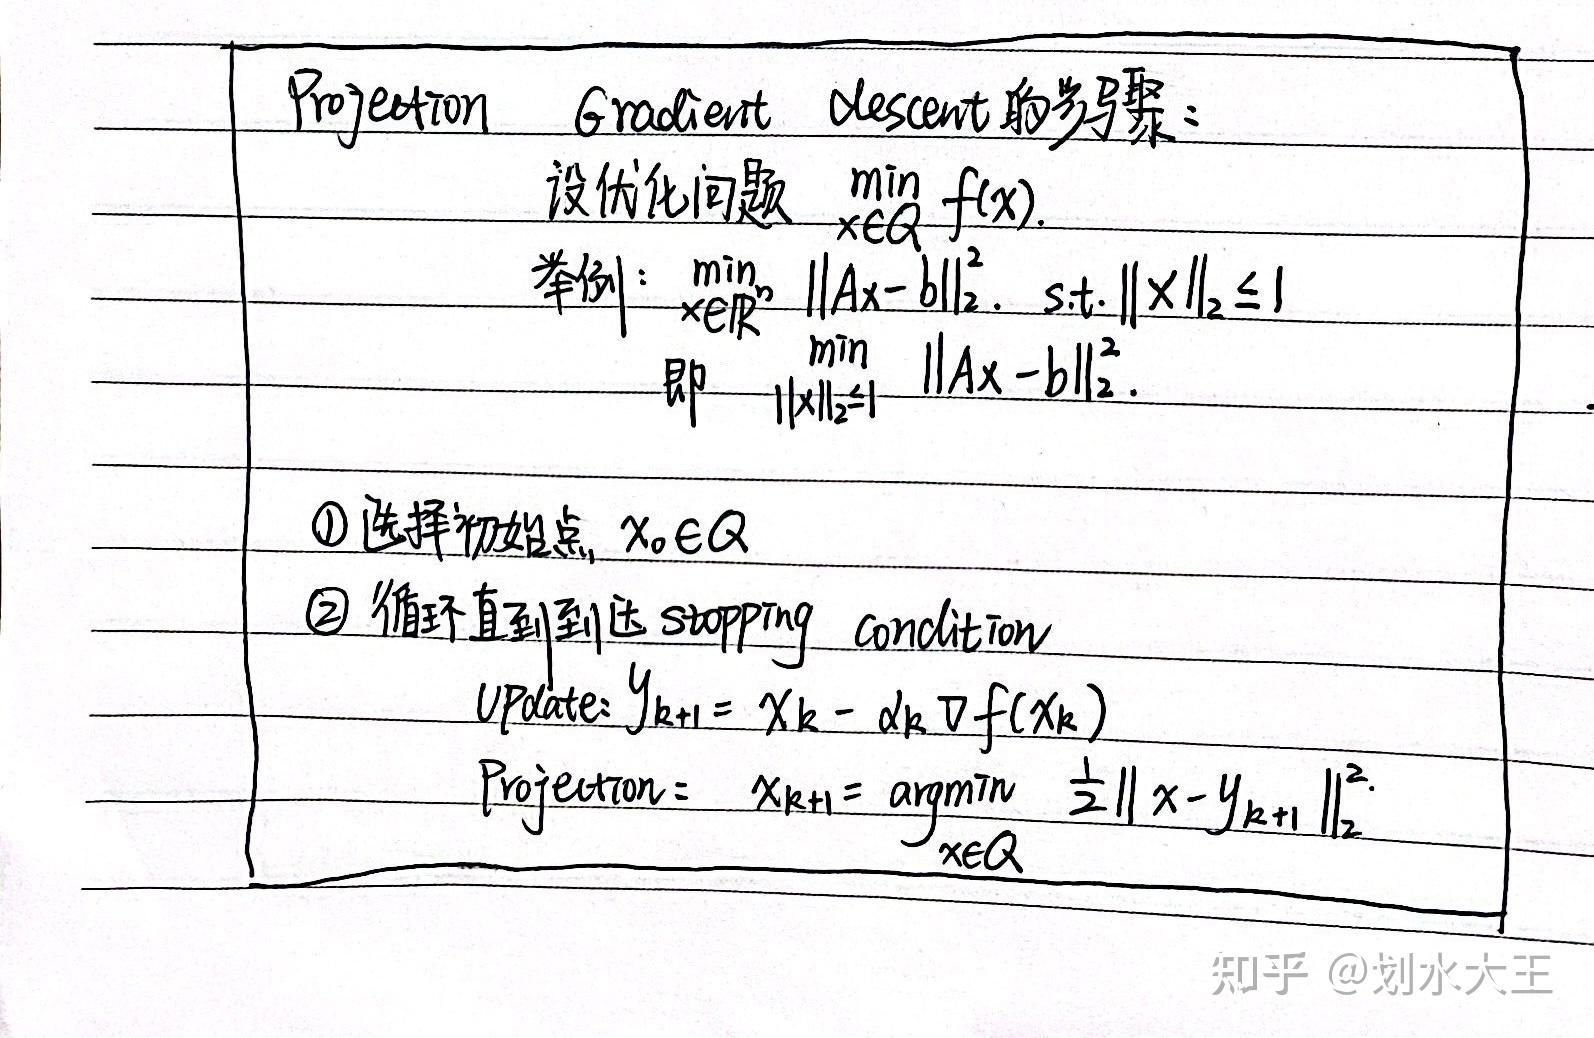 Projection Gradient descent的步骤:
设优化问题 min x∈Q f(x).
举例: min x∈ℝⁿ ||Ax-b||₂². s.t. ||x||₂≤1
即 min ||x||₂≤1 ||Ax-b||₂².
① 选择初始点, x₀∈Q
② 循环直到到达 stopping condition
Update: yₖ₊₁ = xₖ - αₖ∇f(xₖ)
Projection: xₖ₊₁ = argmin x∈Q ½||x-yₖ₊₁||₂².
知乎 @划水大王